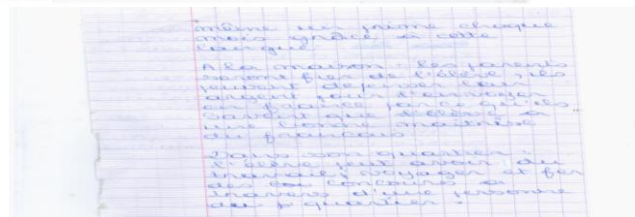 même un prime chaque
mois grâce à cette
langue.
A la maison : les parents
seront fier de l'élève, ils
peuvent déposer leur
argent pour l'envoyer
en france parce qu'ils
savent que l'élève a
une bonne maitrise
du français.
Dans son quartier :
l'élève peut avoir du
travail, voyager et fer
des concours a
travers d'une personne
du quartier.